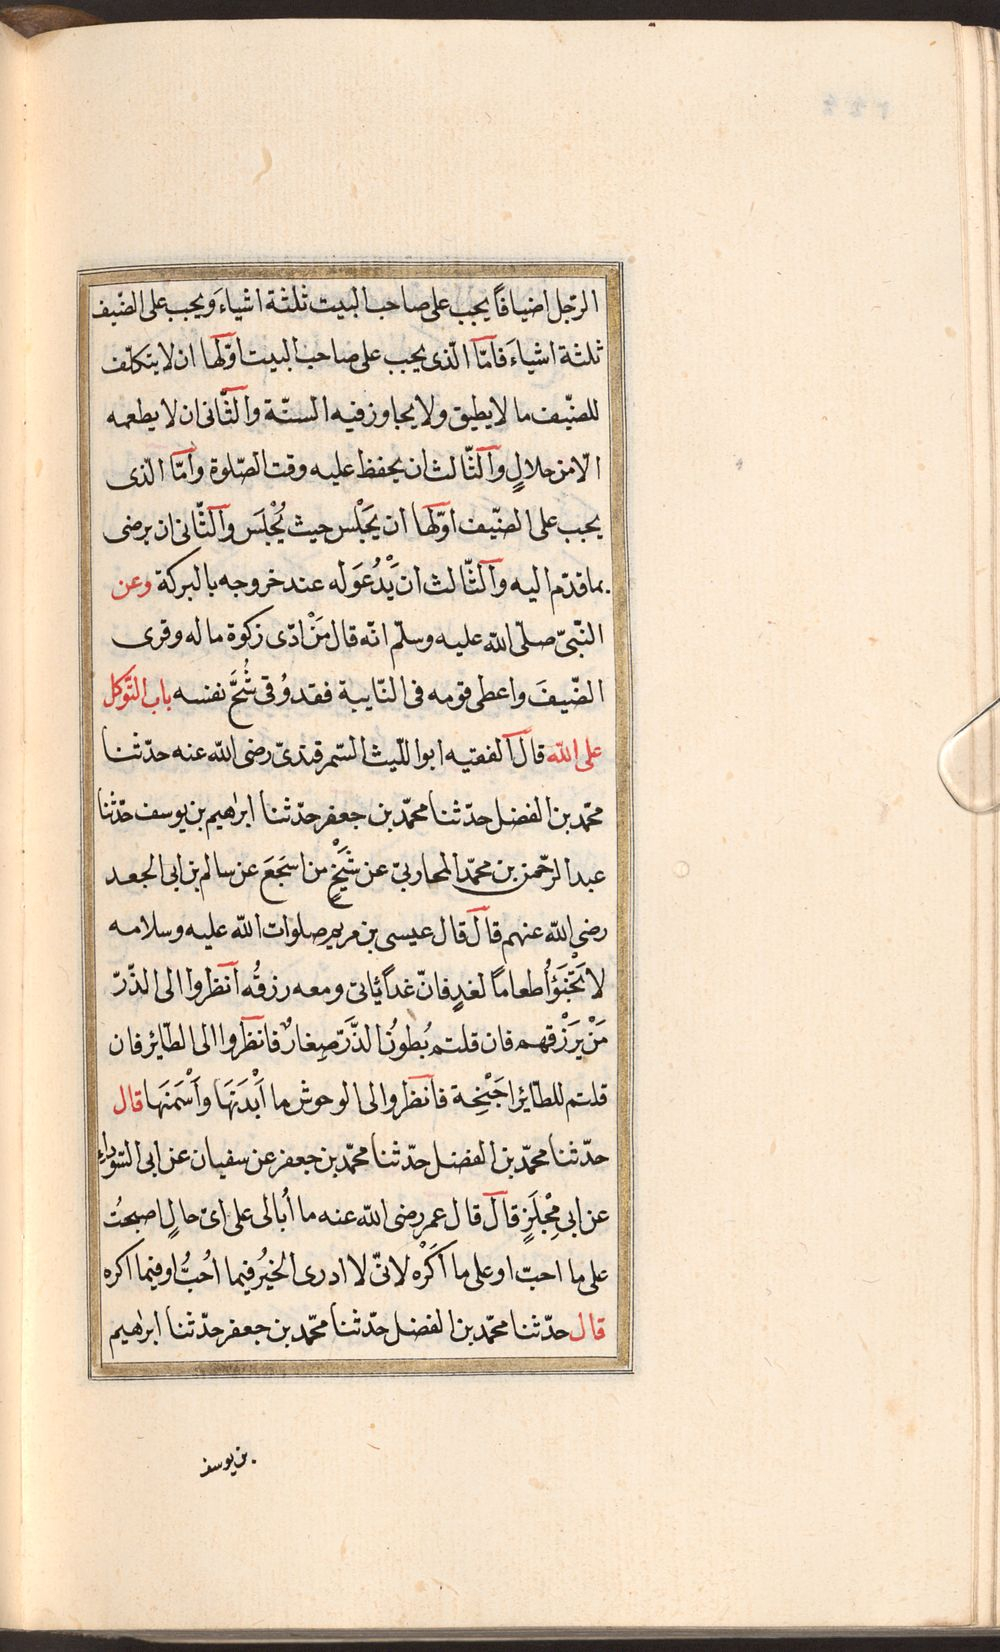 الرّجل اضيافًا يجب على صاحب البيت ثلثة اشياءَ ويجب على الضّيف
ثلثة اشياءَ فامّا الّذى يجب على صاحب البيت اوّلها ان لا يتكلّف
للضّيف ما لا يطيق ولا يجاوز فيه السنّة والثّانى ان لا يطعمه
الّا من حلالٍ والثّالث ان يحفظ عليه وقت الصّلوة وامّا الّذى
يجب على الضّيف اوّلها ان يَجْلس حيث يُجْلَس والثّانى ان يرضى
بما قدّم اليه والثّالث ان يَدْعُوَ له عند خروجه بالبركة وعن
النّبىّ صلّى اللّه عليه وسلّم انّه قال مَنْ ادّى زكوة ماله وقرى
الضّيفَ واعطى قومه فى النّايبة فقد وُقى شُحَّ نفسه باب التّوكل
على اللّه قال الفقيه ابو اللّيث السّمرقندىّ رضى اللّه عنه حدّثنا
محمّد بن الفضل حدّثنا محمّد بن جعفر حدّثنا ابرهيم بن يوسف حدّثنا
عبد الرّحمن بن محمّد المحاربىّ عن شَيْخٍ من اسجَعَ عن سالم بن ابى الجعد
رضى اللّه عنهم قال قال عيسى بن مريم صلوات اللّه عليه وسلامه
لا تَخْبَؤُا طعامًا لغدٍ فانّ غداً ياتى ومعه رزقُه انظروا الى الذّرّ
مَنْ يَرْزقهم فان قلتم بُطونُ الذَّرّ صِغارٌ فانظروا الى الطّائر فان
قلتم للطّائر اجْنِحة فانظروا الى الوحوش ما اَبْدَنَهَا واَسْمَنَها قال
حدّثنا محمّد بن الفضل حدّثنا محمّد بن جعفر عن سفيان عن ابى السّوداء
عن ابى مِجْلَزٍ قال قال عمر رضى اللّه عنه ما اُبالى على اىّ حالٍ اصبحتُ
على ما احبّ او على ما اكَرْه لانّى لا ادرى الخيرُ فيما اُحبُّ او فيما اكره
قال حدّثنا محمّد بن الفضل حدّثنا محمّد بن جعفر حدّثنا ابرهيم
بن يوسف